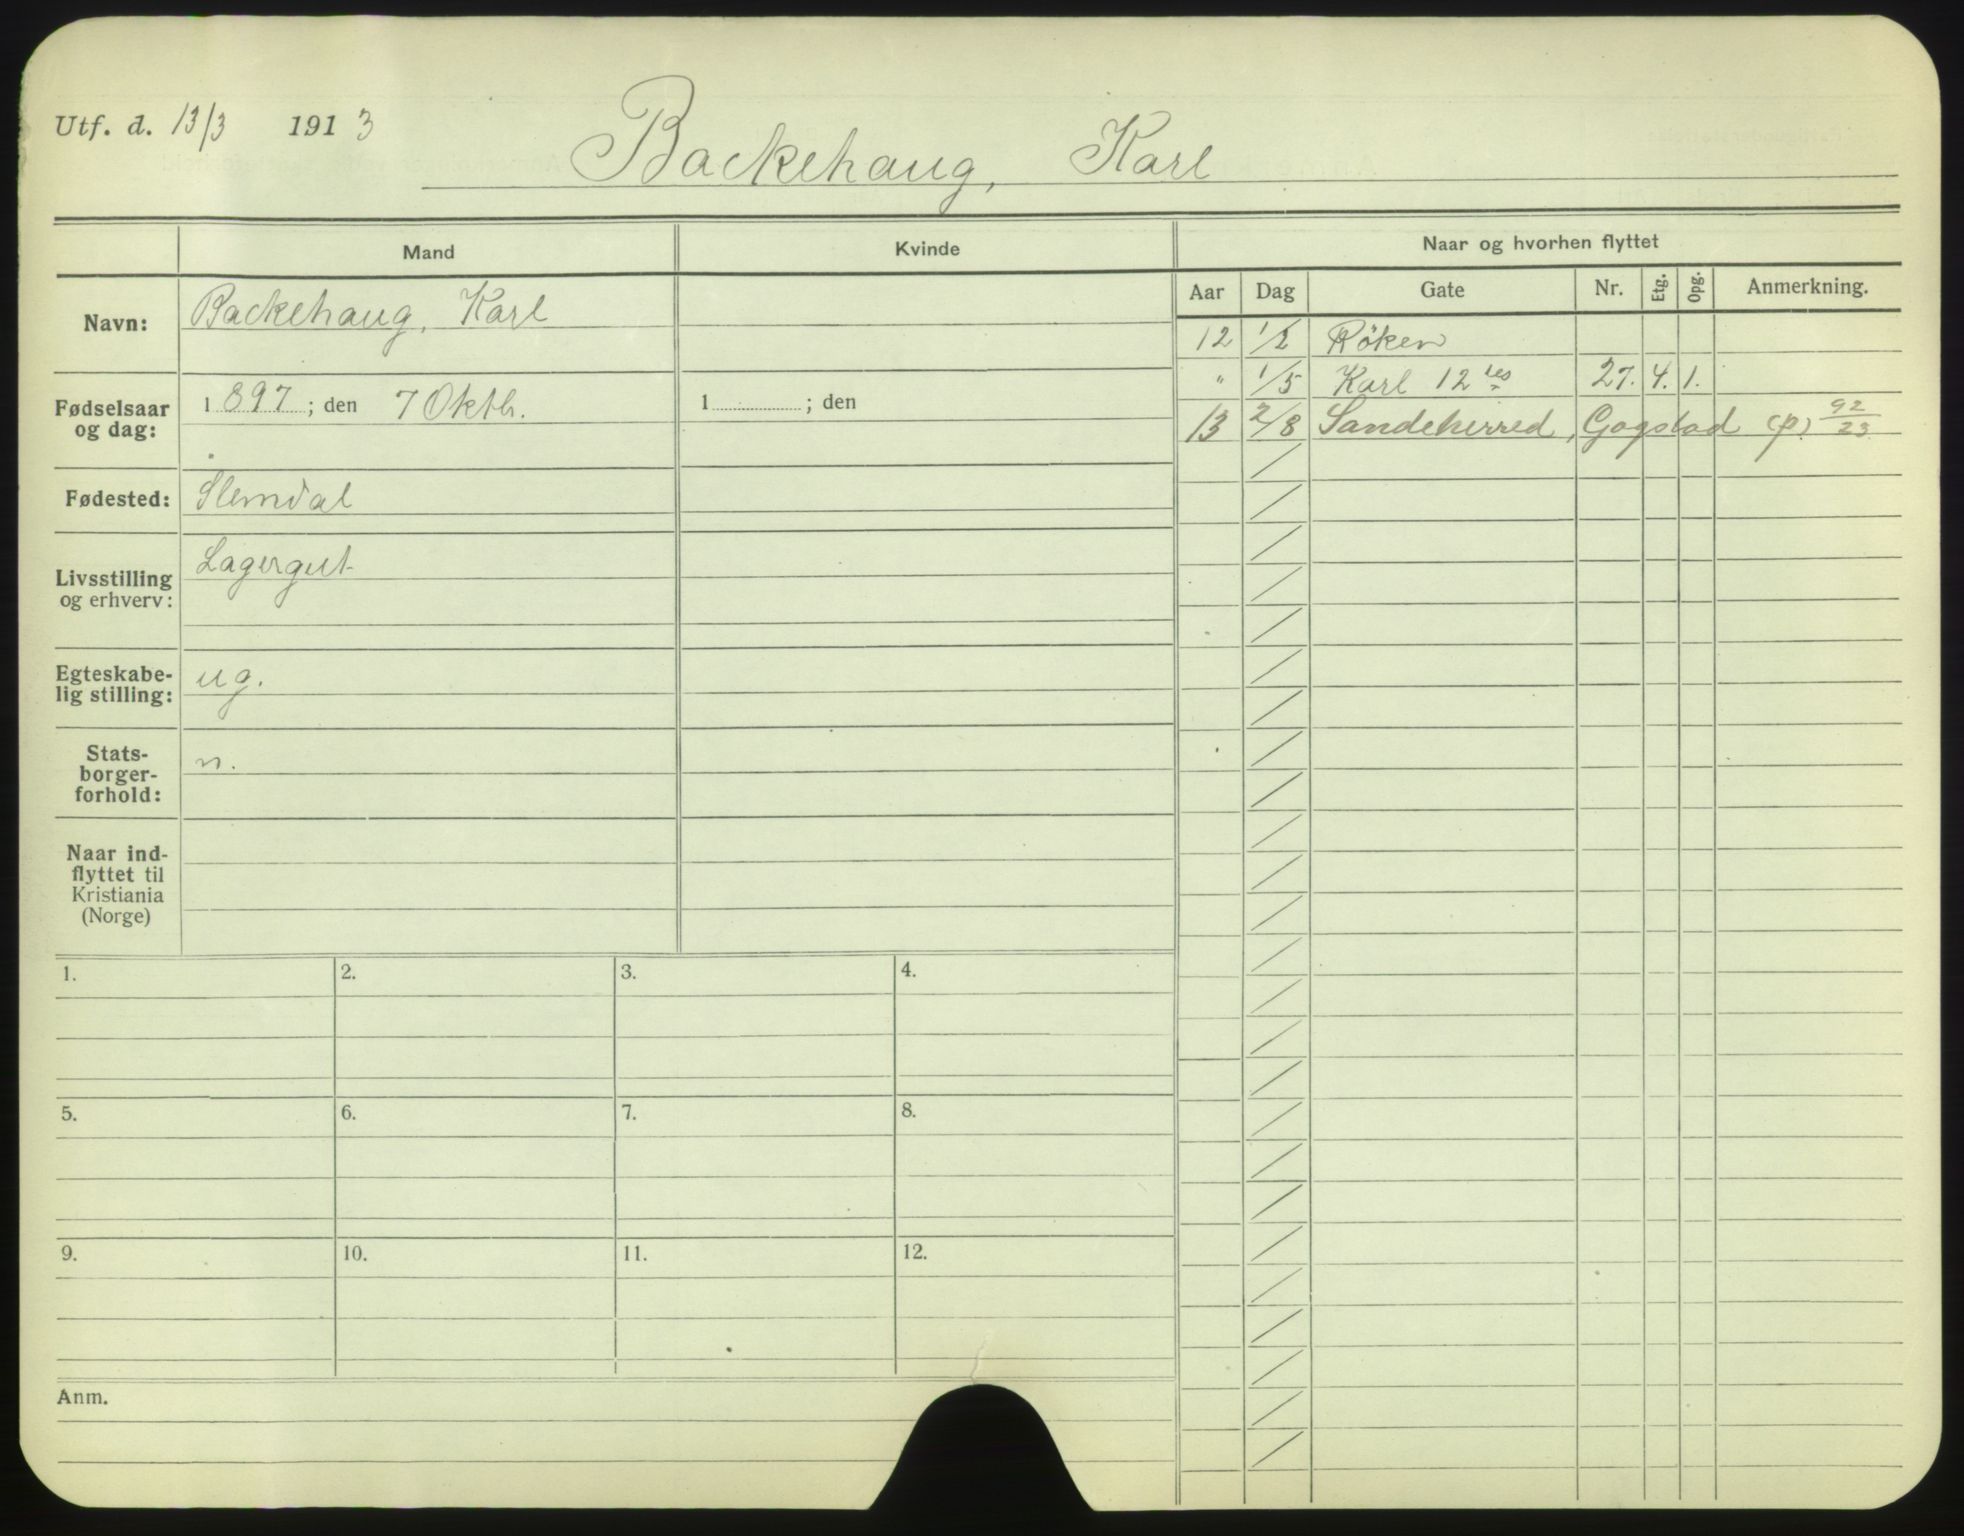 Utf. d. 13/3 1913
Backehaug, Karl
Mand
Kvinde
Naar og hvorhen flyttet
Aar Dag Gate Nr. Etg. Opg. Anmerkning.
Navn: Backehaug, Karl
Fødselsaar og dag: 1897; den 7 Oktb. 1 ; den
Fødested: Slemdal
Livsstilling og erhverv: Lagergut
Egteskabe-
lig stilling: ug.
Stats-
borger-
forhold: n.
Naar ind-
flyttet til
Kristiania
(Norge)
12 1/2 Røken
" 1/5 Karl 12tes 27. 4. 1.
13 2/8 Sandeherred, Gogstad (p) 92/23
1. 2. 3. 4.
5. 6. 7. 8.
9. 10. 11. 12.
Anm.